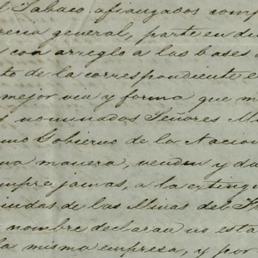 l Tabaco afianzados comp
rena general, parte en de
con arreglo a las bases
to de la correspondiente e
mejor via y forma que m
nominados Señores M
mo Gobierno de la Nacion
na manera, venden y da
a la exting
de las Minas del
nombre declaran no esta
la misma empresa, y por